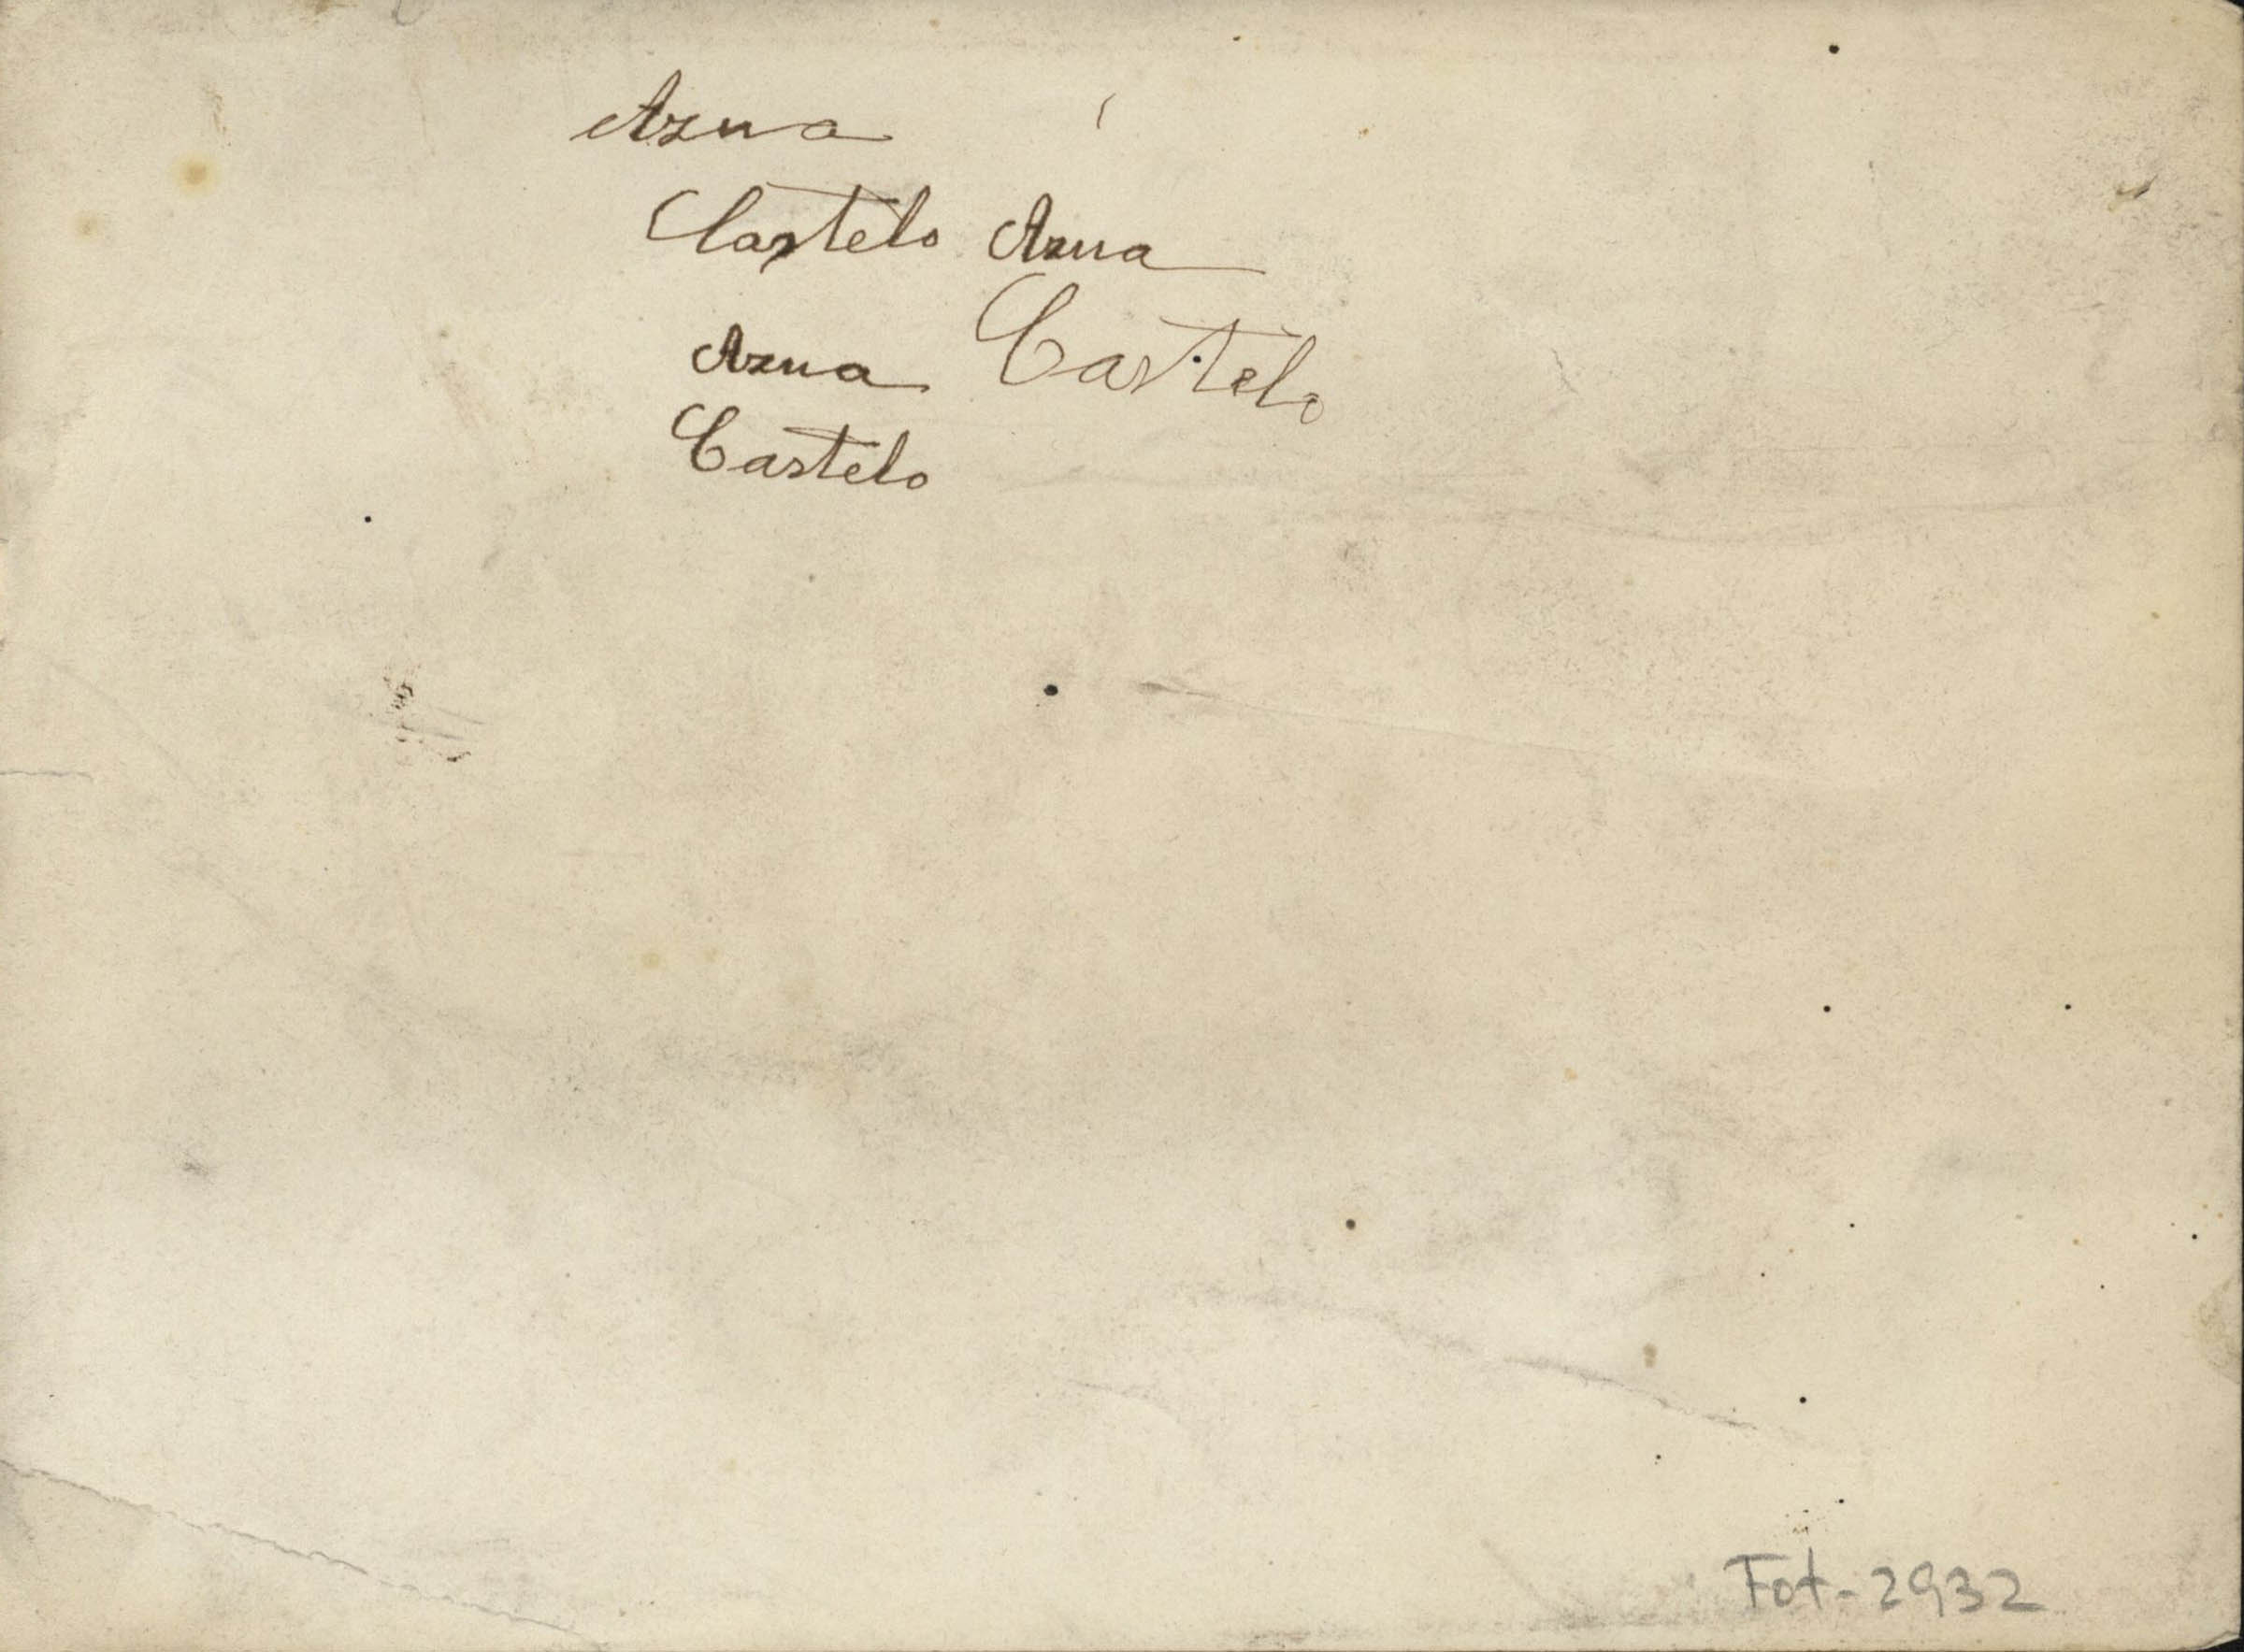 Azua
Castelo Azua
Azua Castelo
Castelo
Fot-2932